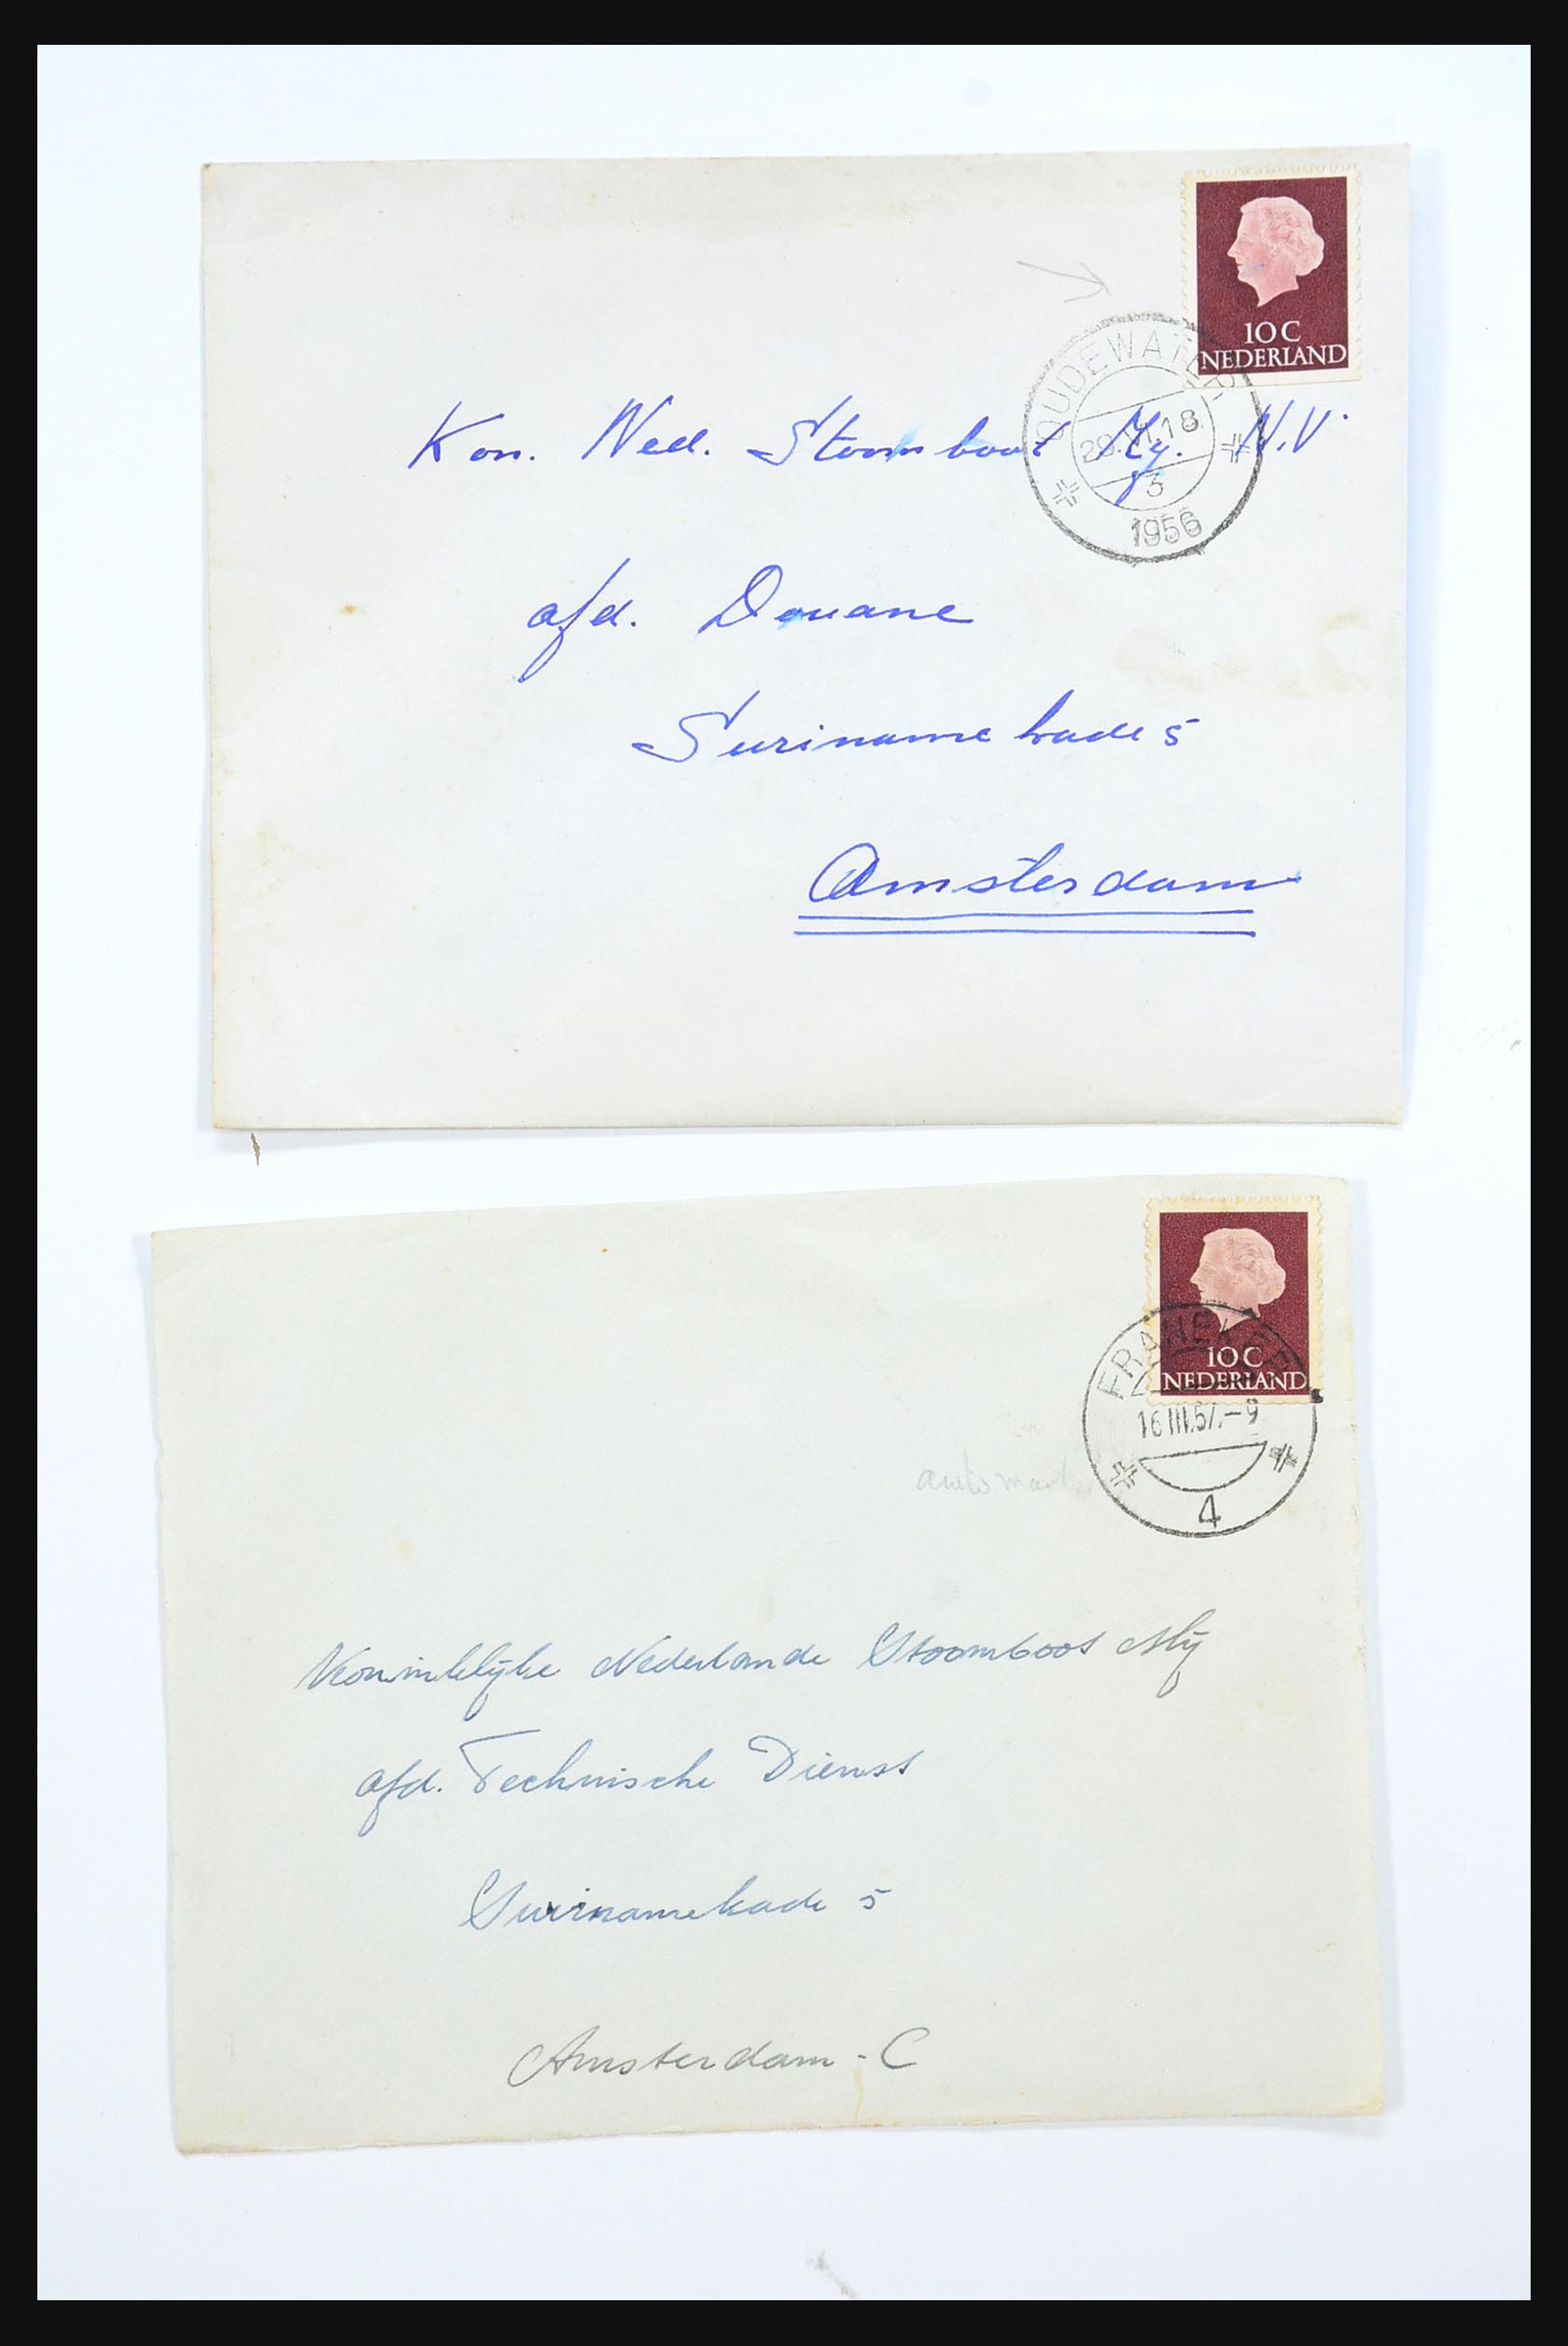 10 C
NEDERLAND
OUDEWATER
1956
3
Kon. Ned. Stoomboot My. N.V.
afd. Douane
Surinamekade 5
Amsterdam
10 C
NEDERLAND
FRANEKER
16 III.57.-9
4
Koninklijke Nederlande Stoomboot Mij
afd. Technische Dienst
Surinamekade 5
Amsterdam - C